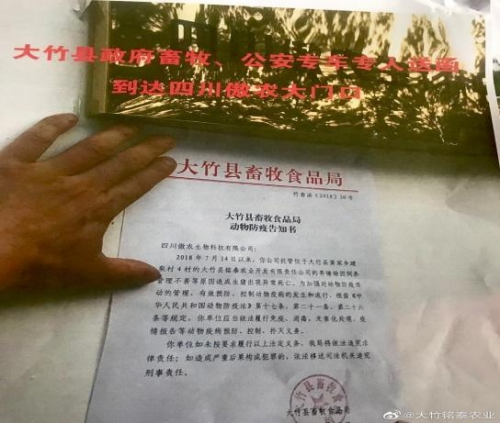 大竹县政府畜牧、公安专车专人送函
到达四川傲农大门口
大竹县畜牧食品局
竹畜品〔2018〕38号
大竹县畜牧食品局
动物防疫告知书
四川傲农生物科技有限公司:
2018年7月14日以来,你公司托管位于大竹县黄家乡建
权村4村的大竹县铭泰农业开发有限责任公司的养猪场因饲养
管理不善等原因造成生猪出现异常死亡,为加强对动物防疫活
动的管理,有效预防、控制动物疫病的发生和流行,根据《中
华人民共和国动物防疫法》第十七条,第二十一条、第二十六
条等规定,你单位应当依法履行免疫、消毒、无害化处理、疫
情报告等动物疫病预防、控制、扑灭义务。
你单位如未按要求履行以上法定义务,我局将依法追究
法律责任;如造成严重后果构成犯罪的,依法移送司法机关追究
刑事责任。
大竹县畜牧食品局
@大竹铭泰农业